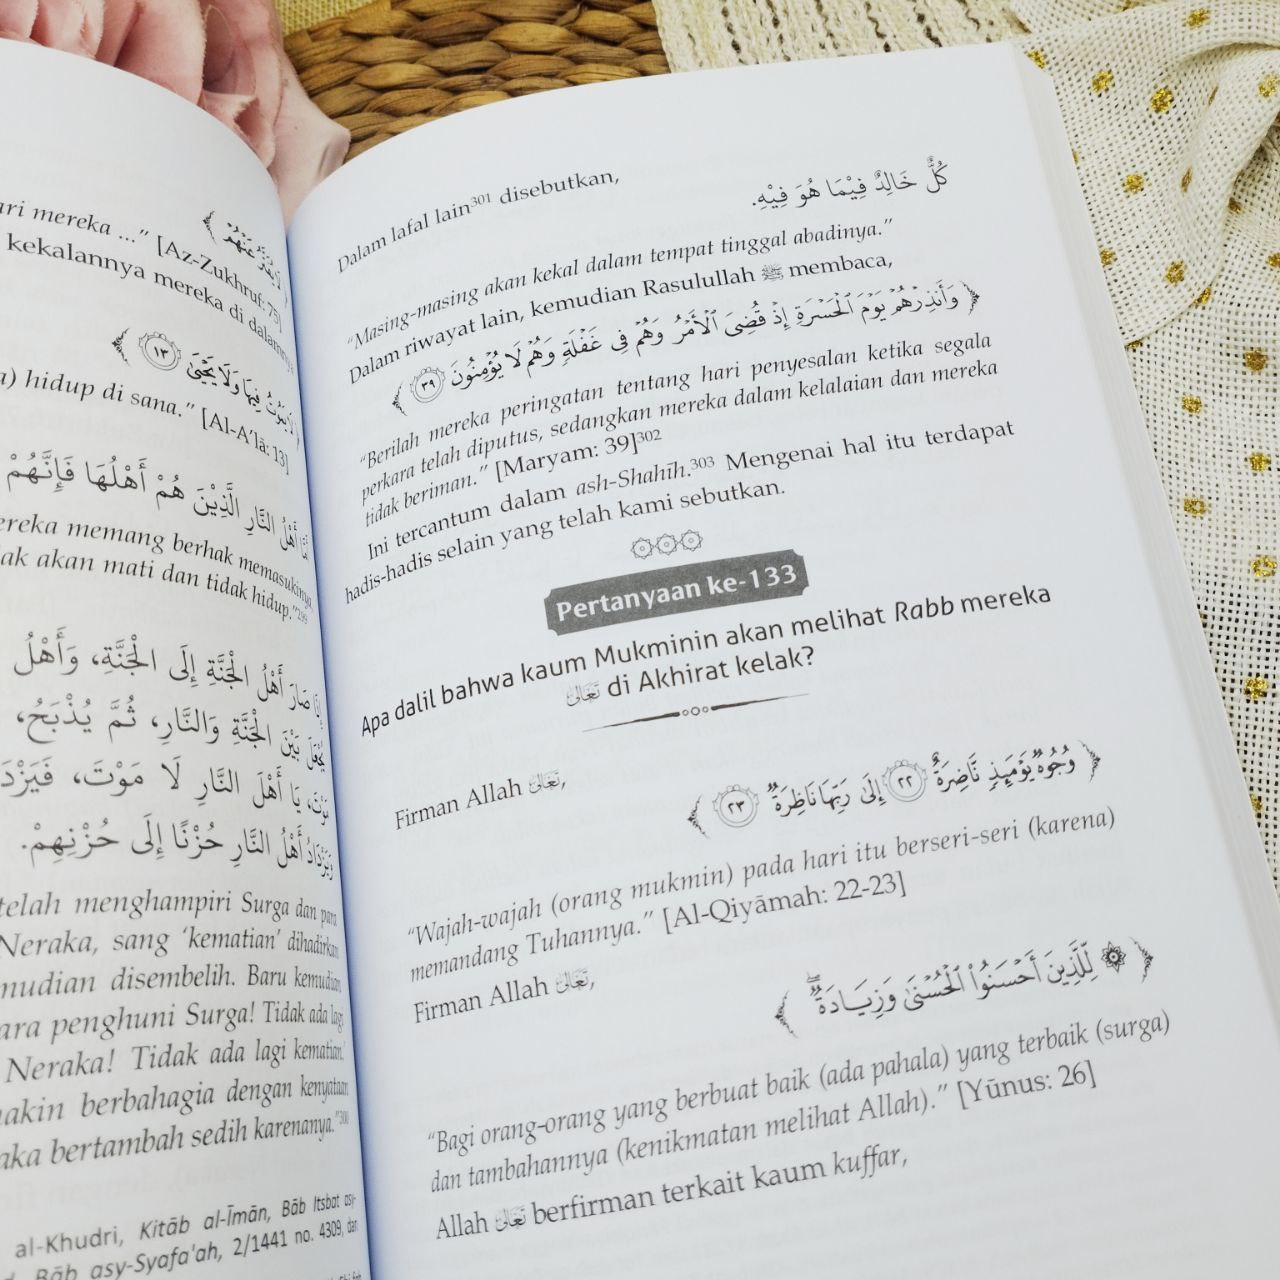 ari mereka ...” [Az-Zukhruf: 75]
kekalannya mereka di dalamnya
﴿١٣﴾ لَا يَمُوْتُ فِيْهَا وَلَا يَحْيٰى
hidup di sana.” [Al-A’lā: 13]
أَهْلُ النَّارِ الَّذِيْنَ هُمْ أَهْلُهَا فَإِنَّهُمْ
ereka memang berhak memasukinya,
ak akan mati dan tidak hidup.”299
صَارَ أَهْلُ الْجَنَّةِ إِلَى الْجَنَّةِ، وَأَهْلُ
يُجْعَلَ بَيْنَ الْجَنَّةِ وَالنَّارِ، ثُمَّ يُذْبَحُ،
يَا أَهْلَ النَّارِ لَا مَوْتَ،
وَيَزْدَادُ أَهْلُ النَّارِ حُزْنًا إِلَى حُزْنِهِمْ.
telah menghampiri Surga dan para
Neraka, sang ‘kematian’ dihadirkan
mudian disembelih. Baru kemudian
ara penghuni Surga! Tidak ada lagi
Neraka! Tidak ada lagi kematian.’
akin berbahagia dengan kenyataan
ka bertambah sedih karenanya.”300
al-Khudri, Kitāb al-Īmān, Bāb Itsbat asy-
Bāb asy-Syafa'ah, 2/1441 no. 4309, dan
Dalam lafal lain301 disebutkan,
كُلٌّ خَالِدٌ فِيْمَا هُوَ فِيْهِ.
“Masing-masing akan kekal dalam tempat tinggal abadinya.”
Dalam riwayat lain, kemudian Rasulullah ﷺ membaca,
﴿وَأَنذِرْهُمْ يَوْمَ ٱلْحَسْرَةِ إِذْ قُضِىَ ٱلْأَمْرُ وَهُمْ فِى غَفْلَةٍ وَهُمْ لَا يُؤْمِنُونَ ٣٩﴾
“Berilah mereka peringatan tentang hari penyesalan ketika segala
perkara telah diputus, sedangkan mereka dalam kelalaian dan mereka
tidak beriman.” [Maryam: 39]302
Ini tercantum dalam ash-Shahīh.303 Mengenai hal itu terdapat
hadis-hadis selain yang telah kami sebutkan.
Pertanyaan ke-133
Apa dalil bahwa kaum Mukminin akan melihat Rabb mereka
تَعَالَى di Akhirat kelak?
Firman Allah تَعَالَى,
﴿وُجُوهٌ يَوْمَئِذٍ نَّاضِرَةٌ ٢٢ إِلَىٰ رَبِّهَا نَاظِرَةٌ ٢٣﴾
“Wajah-wajah (orang mukmin) pada hari itu berseri-seri (karena)
memandang Tuhannya.” [Al-Qiyāmah: 22-23]
Firman Allah تَعَالَى,
﴿۞ لِّلَّذِينَ أَحْسَنُوا۟ ٱلْحُسْنَىٰ وَزِيَادَةٌ ۖ﴾
“Bagi orang-orang yang berbuat baik (ada pahala) yang terbaik (surga)
dan tambahannya (kenikmatan melihat Allah).” [Yūnus: 26]
Allah تَعَالَى berfirman terkait kaum kuffar,